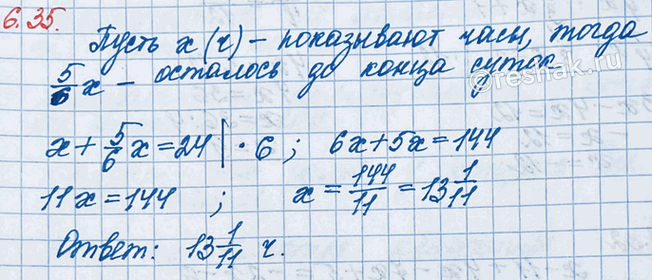 6.35.
Пусть x (ч) – показывают часы, тогда
5/6 x – осталось до конца суток.
x + 5/6 x = 24 | · 6 ; 6x + 5x = 144
11x = 144 ; x = 144/11 = 13 1/11
Ответ: 13 1/11 ч.
reshak.ru